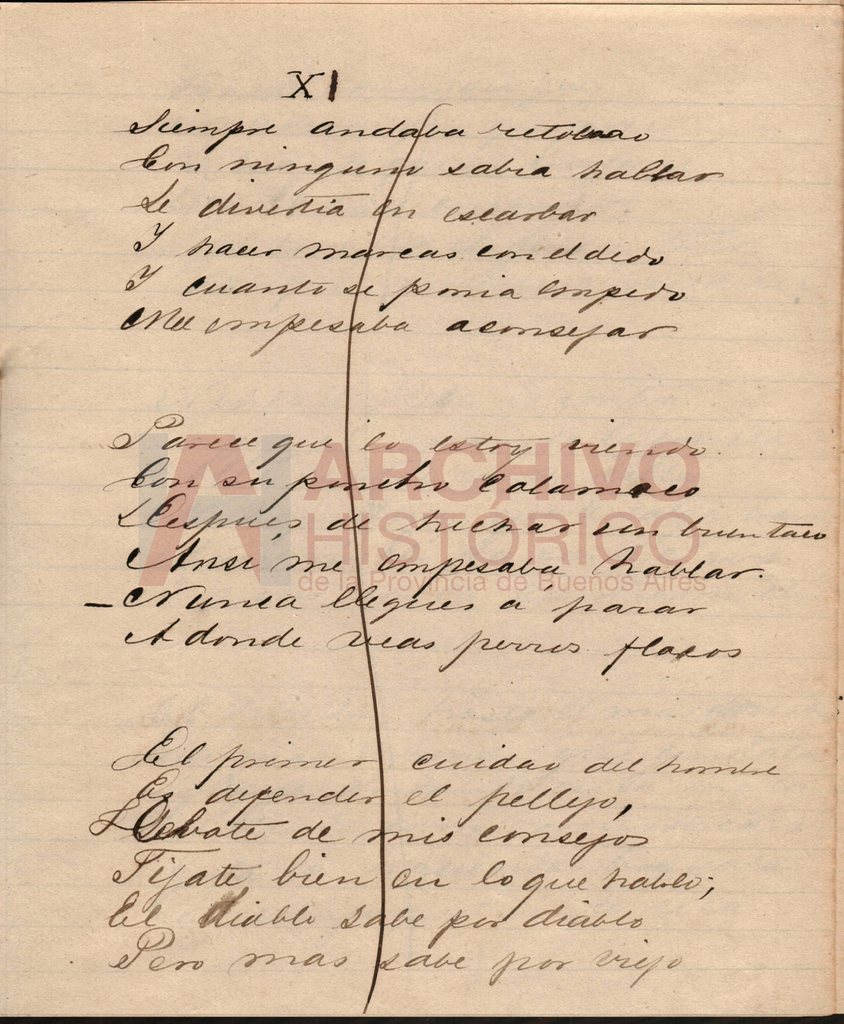 XI
Siempre andaba retobao
Con ninguno sabia hablar
Se divertía en escarbar
Y hacer marcas con el dedo
Y cuanto se ponia empedo
Me empesaba aconsejar
Parece que lo estoy viendo
Con su poncho Calamaco
Despues de hechar un buen taco
Ansi me empesaba hablar.
– Nunca llegues a parar
A donde veas perros flacos
El primer cuidao del hombre
Es defender el pellejo,
Llebate de mis consejos
Fijate bien en lo que hablo;
El diablo sabe por diablo
Pero mas sabe por viejo
ARCHIVO
HISTÓRICO
de la Provincia de Buenos Aires